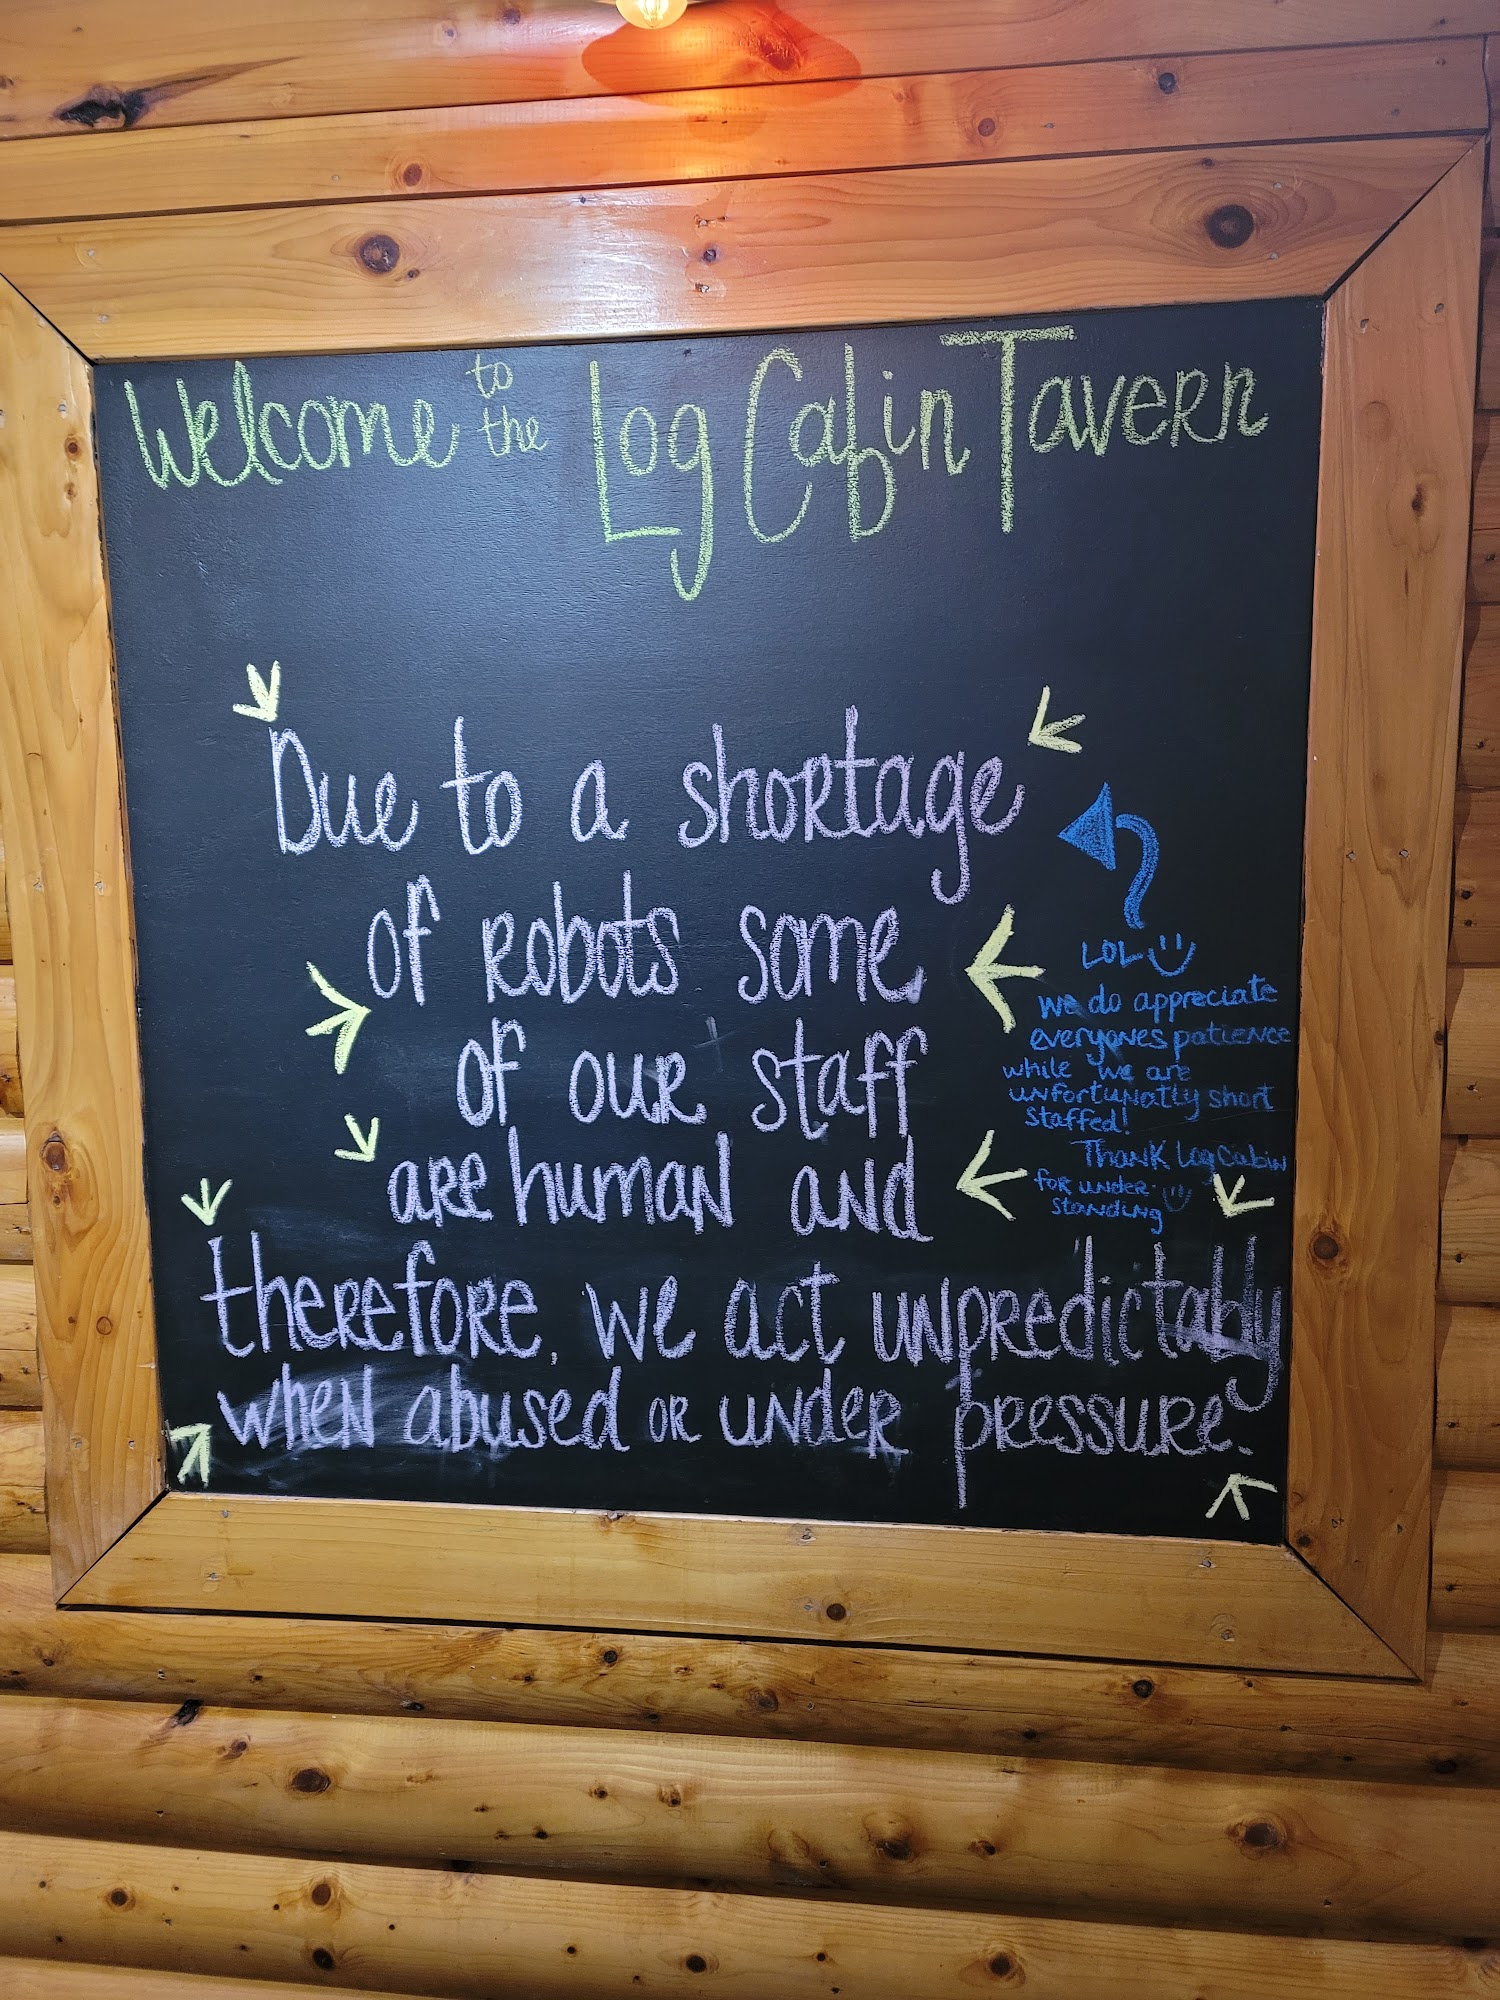 Welcome to the Log Cabin Tavern
Due to a shortage
of robots some
of our staff
are human and
therefore, we act unpredictably
when abused or under pressure.
LOL
we do appreciate
everyones patience
while we are
unfortunatly short
staffed!
Thank Log Cabin
for under-
standing